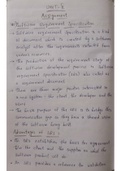 Unit-2
Assignment
Software Requirement Specification
Software requirement specification is a kind
of document which is created by a software
analyst after the requirements collected from
various sources.
The production of the requirements stage of
the software development process is Software
requirement specification (SRS) also called as
a requirement document.
There are three major parties interested in
a new system - the client the developer and the
users.
The basic purpose of SRS is to bridge the
communication gap so they have a shared vision
of the software being built.
Advantages of SRS:
An SRS establishes the basis for agreement
b/w the client and the supplier on what the
software product will do.
An SRS provides a reference for validation